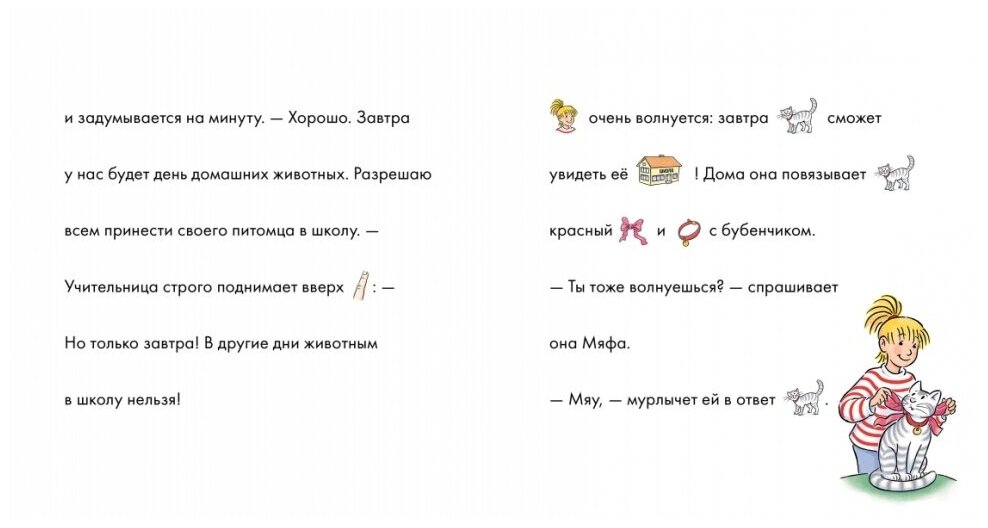 и задумывается на минуту. — Хорошо. Завтра
у нас будет день домашних животных. Разрешаю
всем принести своего питомца в школу. —
Учительница строго поднимает вверх : —
Но только завтра! В другие дни животным
в школу нельзя!
очень волнуется: завтра сможет
увидеть её ! Дома она повязывает
красный и с бубенчиком.
— Ты тоже волнуешься? — спрашивает
она Мяфа.
— Мяу, — мурлычет ей в ответ .